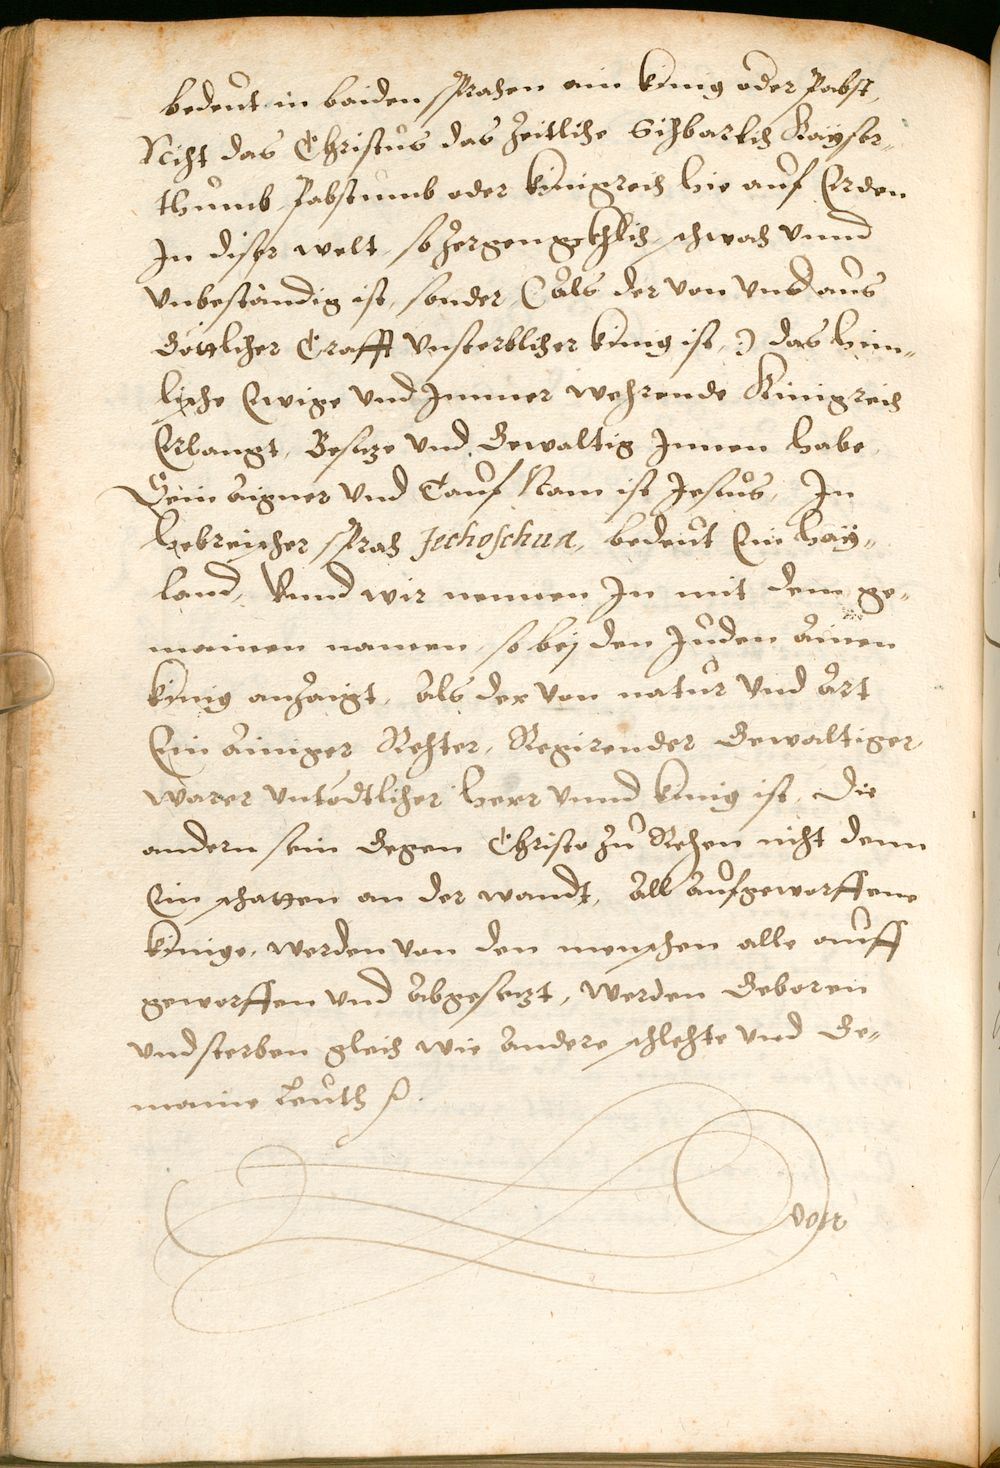 bedeut in baiden sprachen ain könig oder Pabst,
Nicht das Christus das zeitliche Sichbarlich Kayser„
thumb Pabstumb oder königreich hie auf Erden
In diser welt, so zergengekhlich, schwach vnnd
vnbeständig ist, sonder (als der von vnd aus
Göttlicher Crafft vnsterblicher könig ist,) das him„
lische Ewige vnd Immer wehrende Königreich
Erlangt, Besitze vnd Gewaltig Innen habe.
Sein aigner vnd Tauf Nam ist Jesus, In
hebreischer sprach Jechoschua, bedeut Ein hay„
land, Vnnd wir nennen In mit dem ge„
mainen namen, so bej den Juden ainen
könig anzaigt, als der von natur vnd art
Ein ainiger Rechter, Regirender Gewaltiger,
warer vntödtlicher herr vnnd könig ist, Die
andern sein Gegen Christo zu Rechen nicht denn
Ein schatten an der wandt, All Aufgeworffene
könige, werden von den menschen alle auff
geworffen vnd Abgesetzt, werden Geboren
vnd sterben gleich wie andere schlechte vnd Ge„
maine Leuth
Von